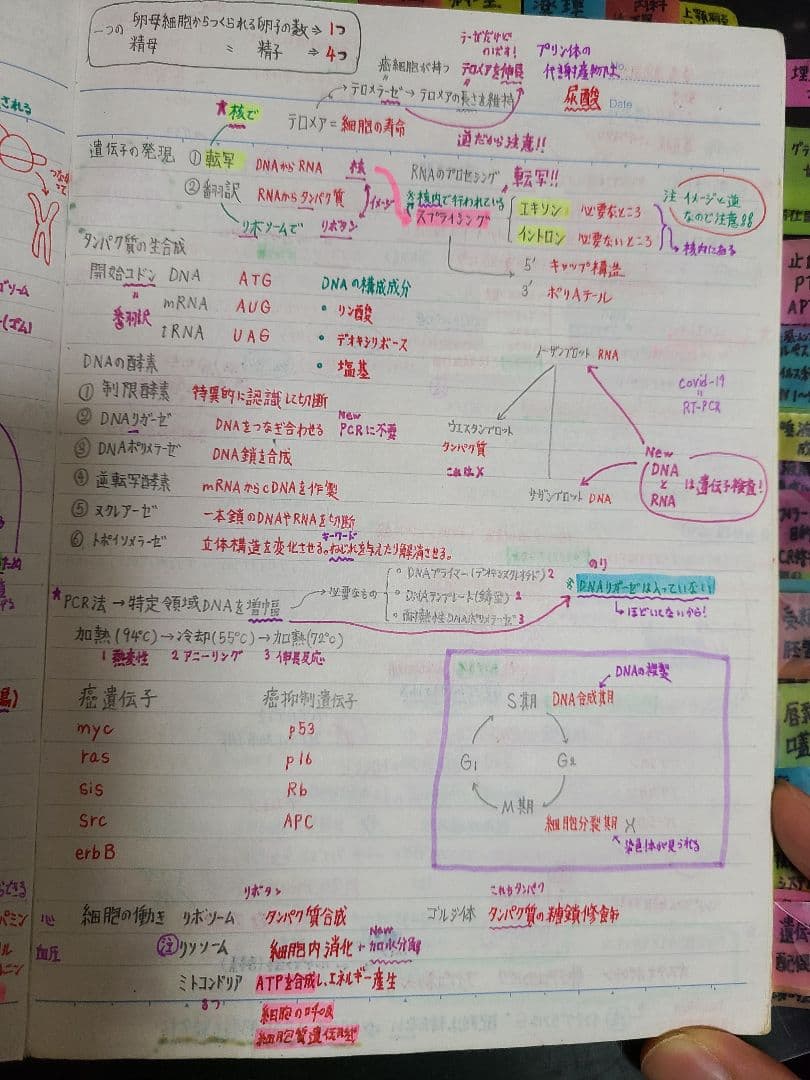 一つの 卵母細胞からつくられる卵子の数⇒ 1つ
精母 〃 精子 ⇒ 4つ
テーゼだけど
のばす!
癌細胞が持つ テロメアを伸長
プリン体の
代謝産物は
尿酸
No.
Date
テロメラーゼ→テロメアの長さを維持
テロメア=細胞の寿命
逆だから注意!!
★核で
遺伝子の発現 ①転写 DNAから RNA 核
②翻訳 RNAから タンパク質
イメージ
リボソームで リボタン
RNAのプロセシング 転写!!
※核内で行われている
スプライシング
エキソン 必要なところ
イントロン 必要ないところ
→核内にある
注 イメージと逆
なので注意!!
5' キャップ構造
3' ポリAテール
タンパク質の生合成
開始コドン DNA ATG
〃
翻訳
mRNA AUG
tRNA UAG
DNAの構成成分
• リン酸
• デオキシリボース
• 塩基
DNAの酵素
① 制限酵素 特異的に認識して切断
② DNAリガーゼ DNAをつなぎ合わせる New PCRに不要
③ DNAポリメラーゼ DNA鎖を合成
④ 逆転写酵素 mRNAからcDNAを作製
⑤ ヌクレアーゼ 一本鎖のDNAやRNAを切断
キーワード
⑥ トポイソメラーゼ 立体構造を変化させる。ねじれを与えたり解消させる。
ノーザンブロット RNA
ウエスタンブロット
タンパク質
これは×
サザンブロット DNA
covid-19
〃
RT-PCR
New
DNA
と
RNA
は遺伝子検査!
★PCR法→特定領域DNAを増幅
必要なもの
• DNAプライマー(デオキシヌクレオチド)2
• DNAテンプレート(鋳型) 1
• 耐熱性DNAポリメラーゼ 3
のり
※DNAリガーゼは入っていない
↳ほどいてないから!
加熱(94℃)→冷却(55℃)→加熱(72℃)
1 熱変性 2 アニーリング 3 伸長反応
癌遺伝子 癌抑制遺伝子
myc p53
ras p16
sis Rb
src APC
erbB
DNAの複製
S期 DNA合成期
G1 G2
M期
細胞分裂期 X
染色体が見られる
リボタン
細胞の働き リボソーム タンパク質合成
これもタンパク
ゴルジ体 タンパク質の糖鎖修飾
注 リソソーム 細胞内消化 + New 加水分解
ミトコンドリア ATPを合成し、エネルギー産生
細胞の呼吸
細胞質遺伝
心
血圧